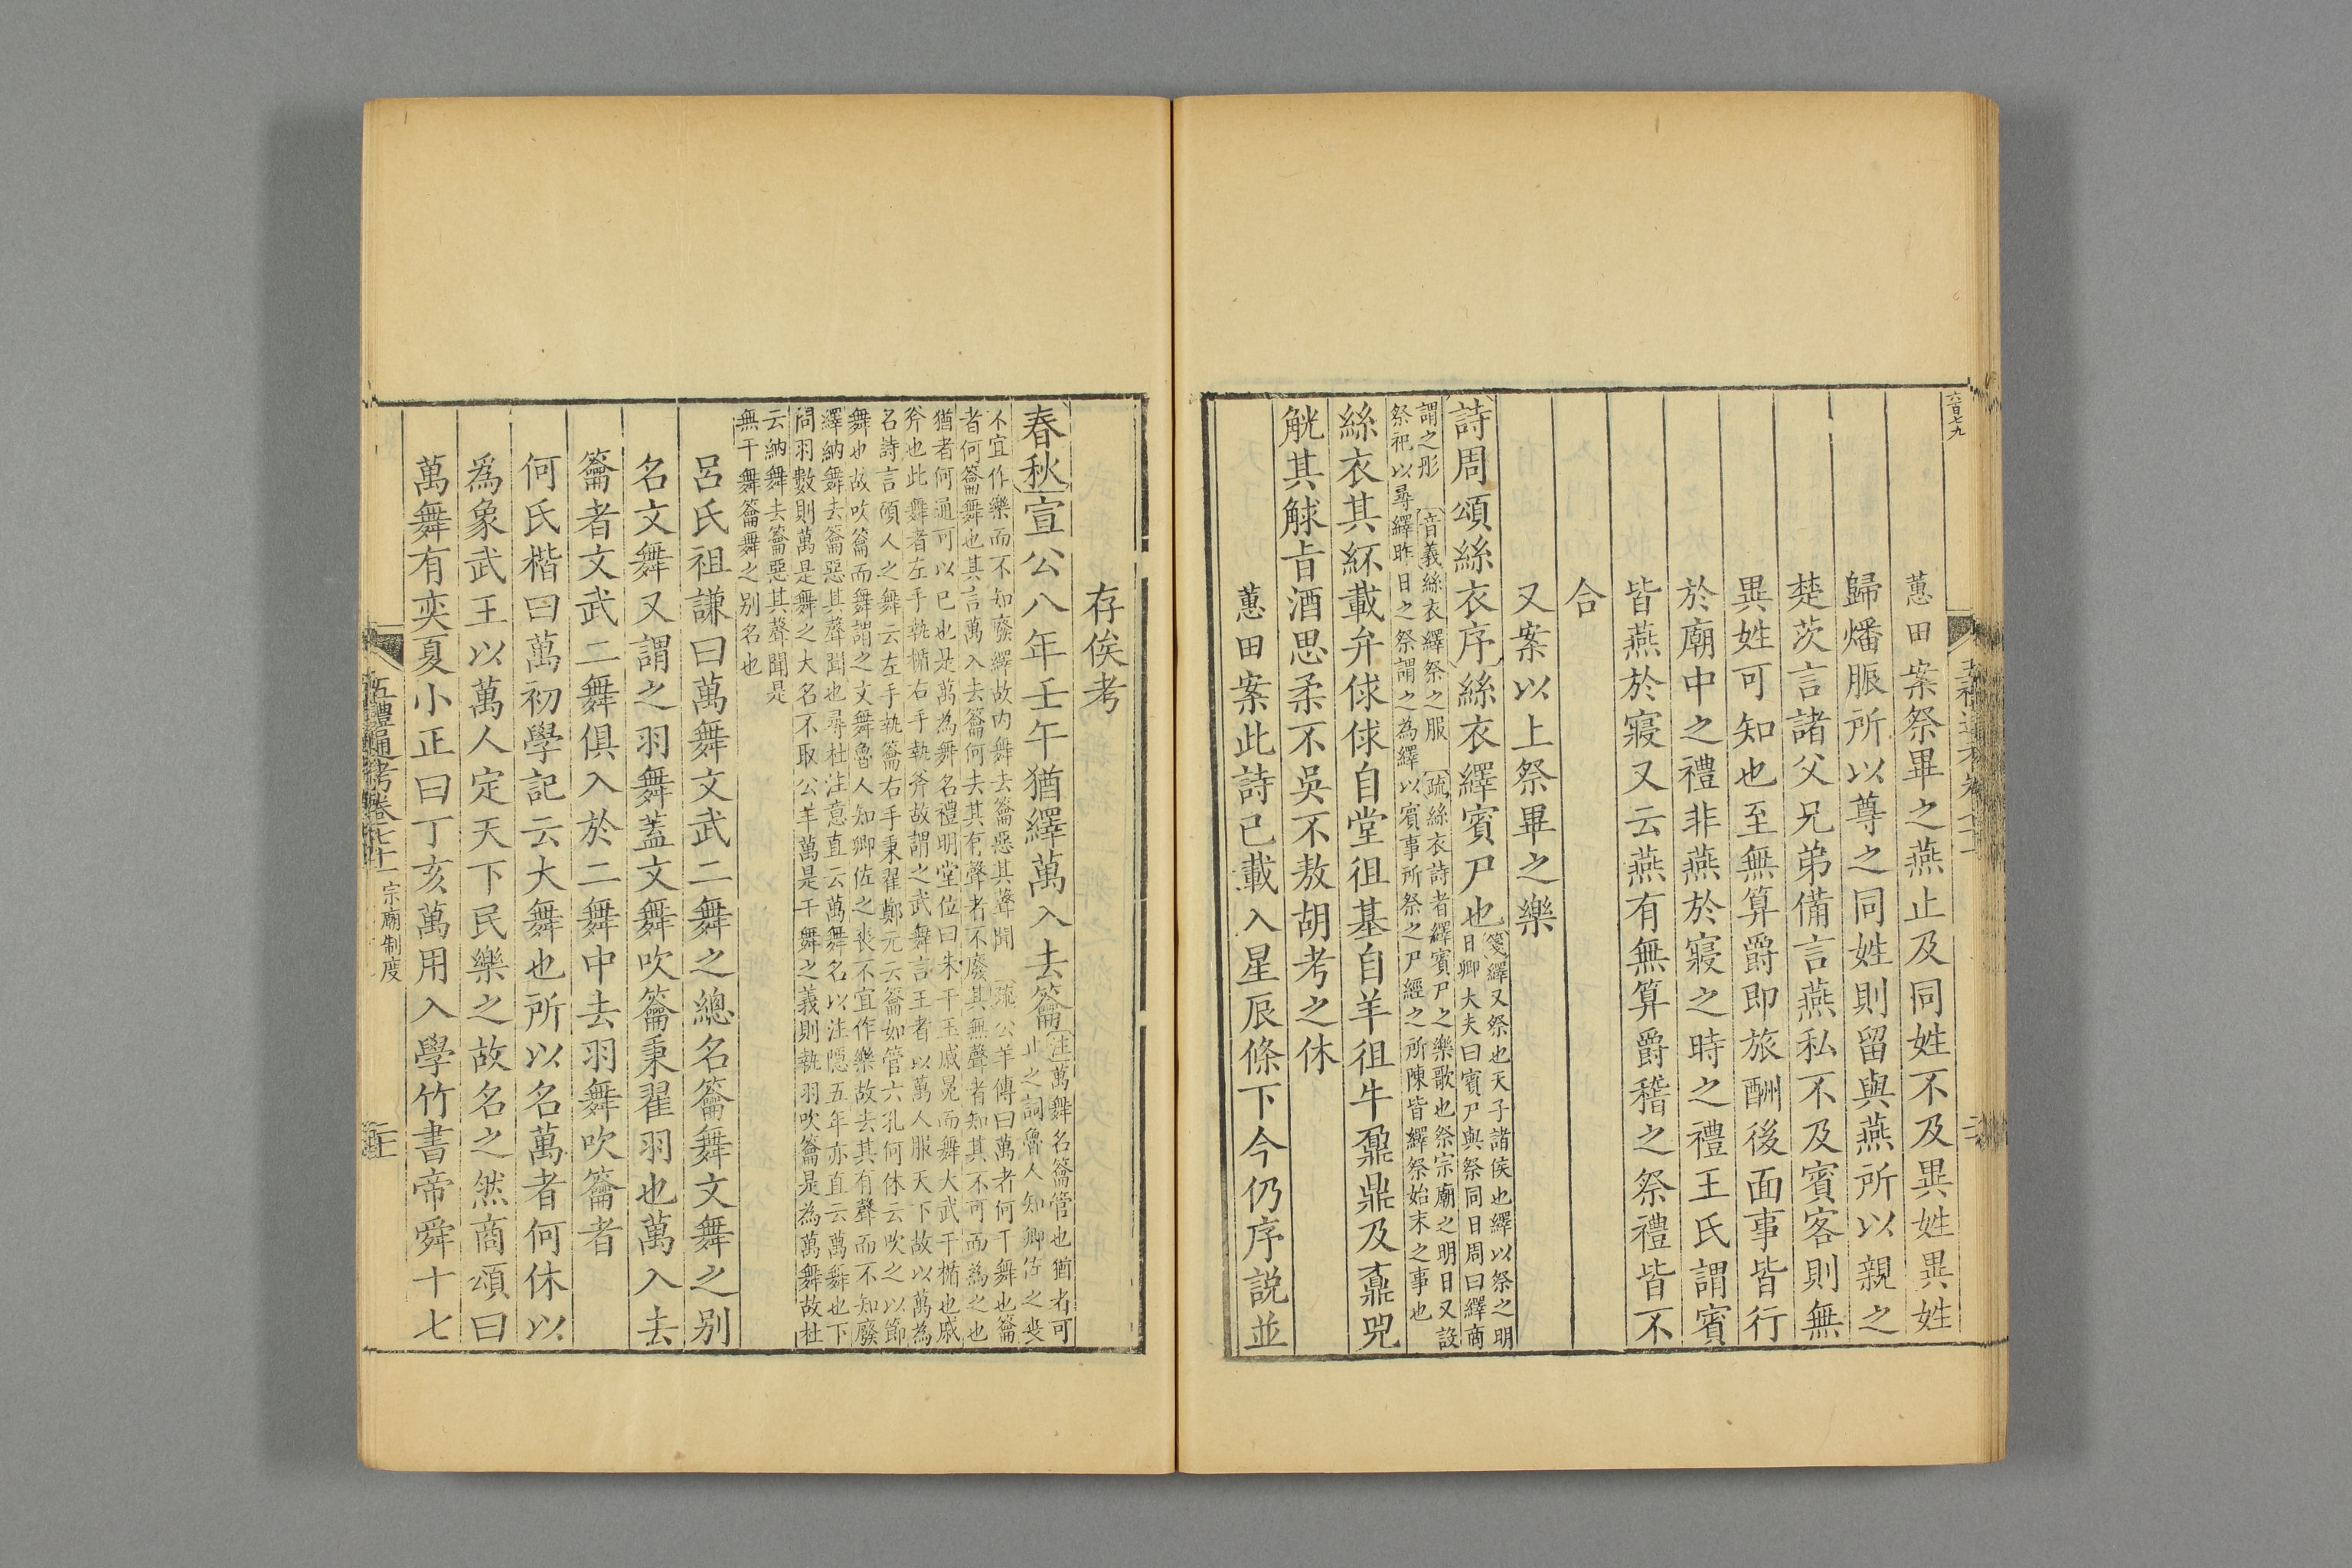 六百七九
蕙田案祭畢之燕止及同姓不及異姓異姓
歸燔脤所以尊之同姓則留與燕所以親之
楚茨言諸父兄弟備言燕私不及賓客則無
異姓可知也至無算爵即旅酬後面事皆行
於廟中之禮非燕於寢之時之禮王氏謂賓
皆燕於寢又云燕有無算爵稽之祭禮皆不
合
又案以上祭畢之樂
詩周頌絲衣序絲衣繹賓尸也箋繹又祭也天子諸侯也繹以祭之明
日卿大夫曰賓尸與祭同日周曰繹商
謂之肜 音義絲衣繹祭之服 疏絲衣詩者繹賓尸之樂歌也祭宗廟之明日又設
祭祀以尋繹昨日之祭謂之為繹以賓事所祭之尸經之所陳皆繹祭始末之事也
絲衣其紑載弁俅俅自堂徂基自羊徂牛鼐鼎及鼒兕
觥其觩旨酒思柔不吳不敖胡考之休
蕙田案此詩已載入星辰條下今仍序說並
存俟考
春秋宣公八年壬午猶繹萬入去籥注萬舞名籥管也猶者可
止之詞魯人知卿佐之喪
不宜作樂而不知廢繹故内舞去籥惡其聲聞 疏公羊傳曰萬者何干舞也籥
者何籥舞也其言萬入去籥何去其有聲者不廢其無聲者知其不可而為之也
猶者何通可以已也是萬為舞名禮明堂位曰朱干玉戚冕而舞大武干楯也戚
斧也此舞者左手執楯右手執斧故謂之武舞言王者以萬人服天下故以萬為
名詩言碩人之舞云左手執籥右手秉翟鄭元云籥如管六孔何休云吹之以節
舞也故吹籥而舞謂之文舞魯人知卿佐之喪不宜作樂故去其有聲而不知廢
繹納舞去籥惡其聲聞也尋杜注意直云萬舞名以注隱五年亦直云萬舞也下
問羽數則萬是舞之大名不取公羊萬是干舞之義則執羽吹籥是為萬舞故杜
云納舞去籥惡其聲聞是
無干舞籥舞之別名也
呂氏祖謙曰萬舞文武二舞之總名籥舞文舞之別
名文舞又謂之羽舞蓋文舞吹籥秉翟羽也萬入去
籥者文武二舞俱入於二舞中去羽舞吹籥者
何氏楷曰萬初學記云大舞也所以名萬者何休以
為象武王以萬人定天下民樂之故名之然商頌曰
萬舞有奕夏小正曰丁亥萬用入學竹書帝舜十七
五禮通考卷七十一 宗廟制度